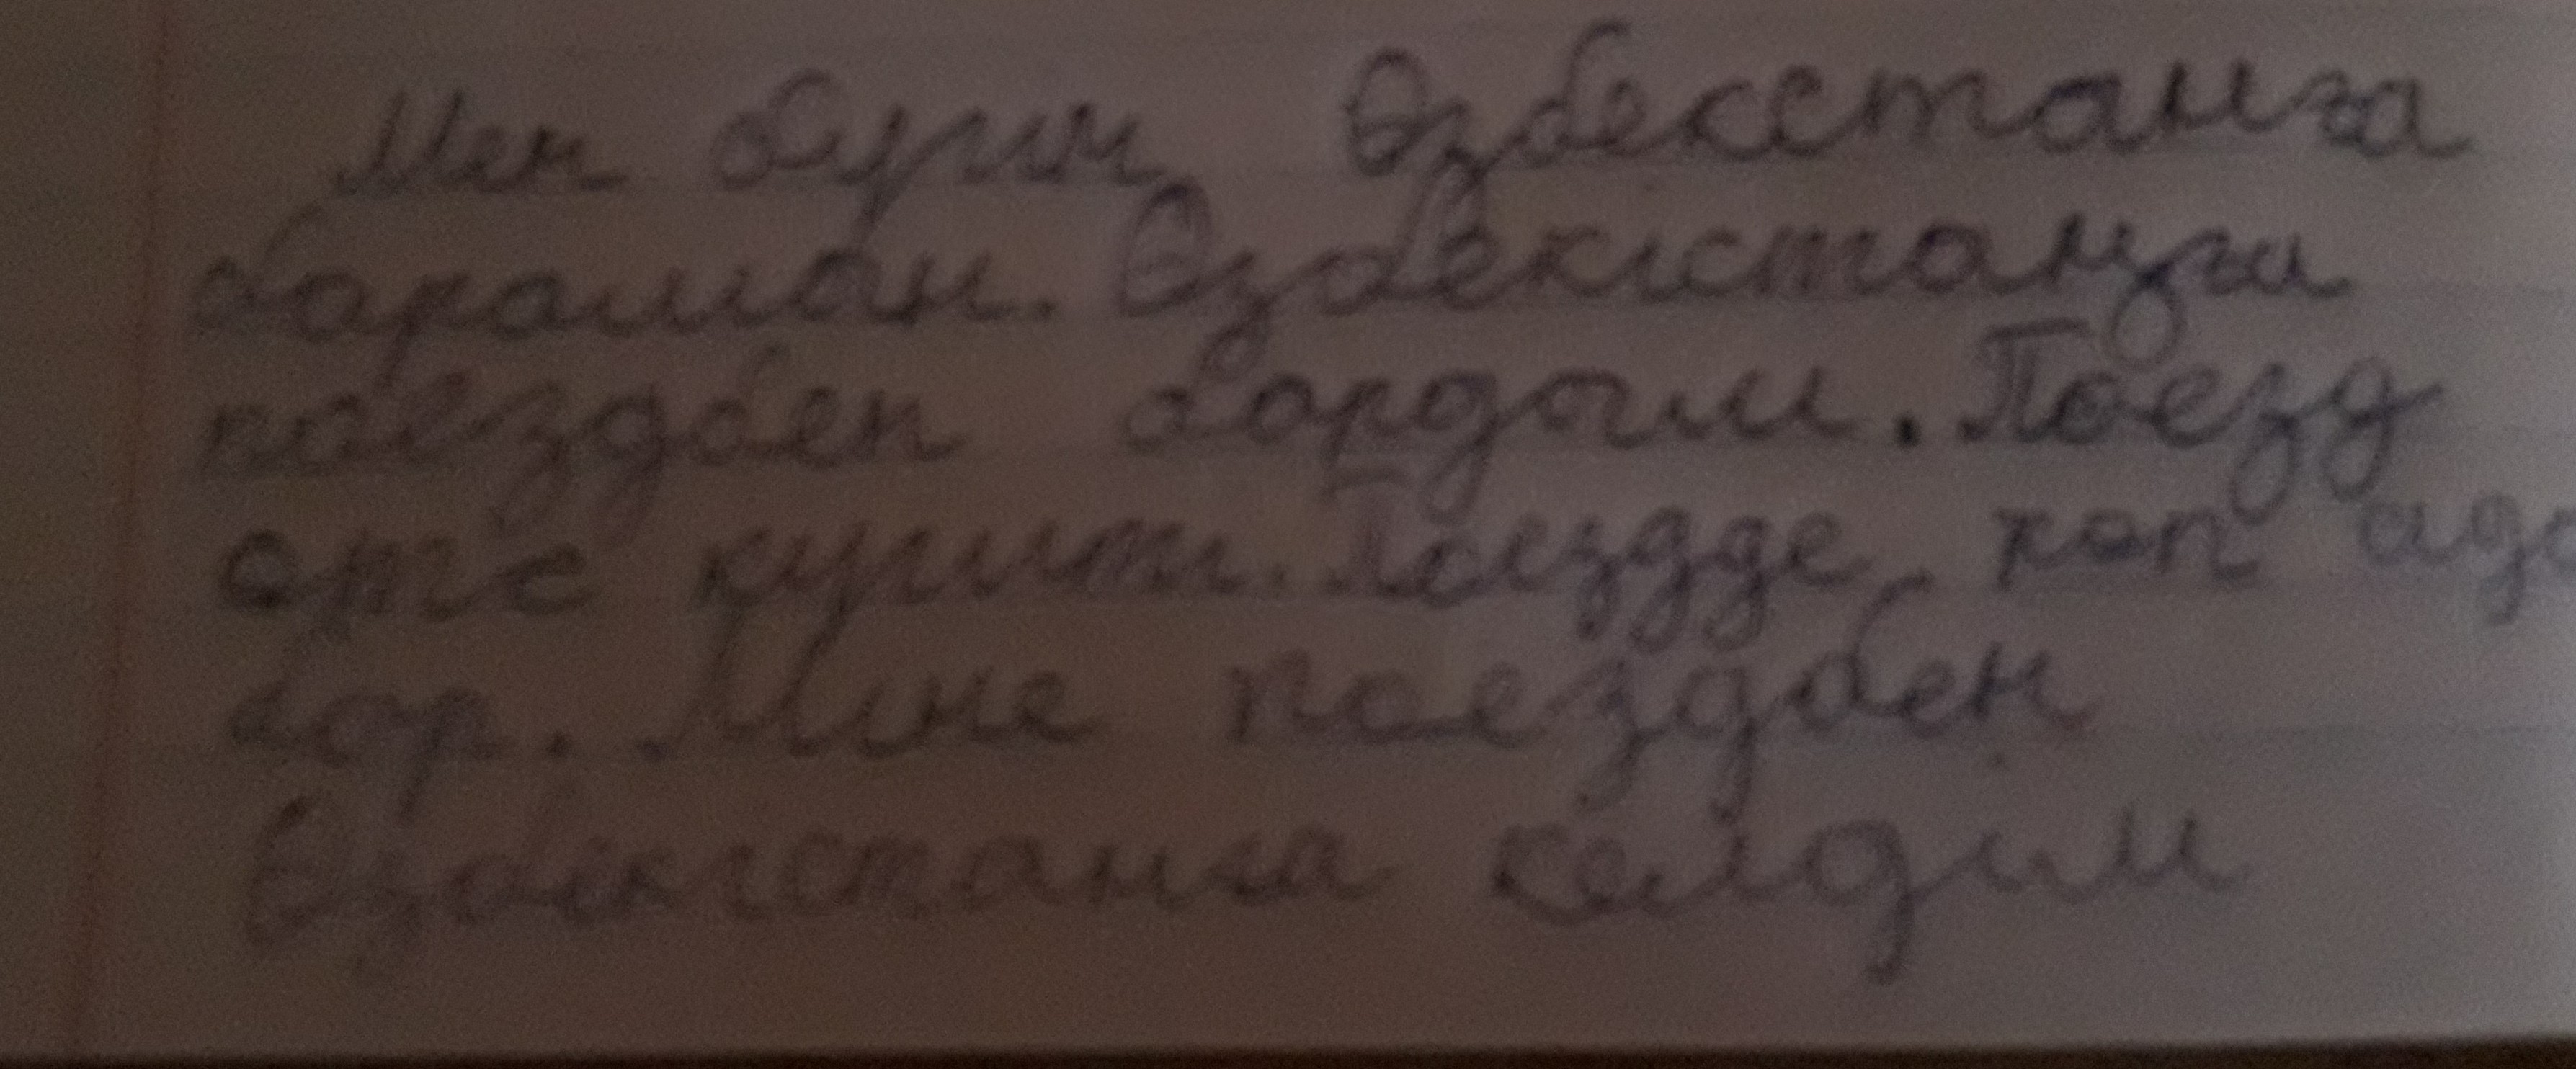 Мен бүгин Өзбекстанга
бараман. Өзбекістанға
поездбен бордым. Поезд
өте күшті. Поездде көп
бор. Мине поездбен
Өзбекістанға келдім